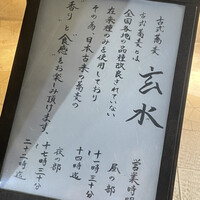 古式蕎麦
玄水
古式蕎麦とは
全国各地の品種改良されていない
在来種のみを使用しており
その為、日本古来の蕎麦の
香りと"食感"をお楽しみ頂けます。
営業時間
昼の部
十一時三十分
十四時迄
夜の部
十七時三十分
二十二時迄